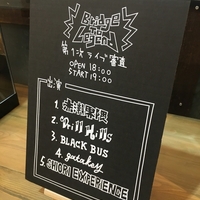 Bridge
to
Legend
第1次 ライブ審査
OPEN 18:00
START 19:00
出演
1.
2. Drill Hills
3. BLACK BUS
4. gatakey
5. SHIORI EXPERIENCE